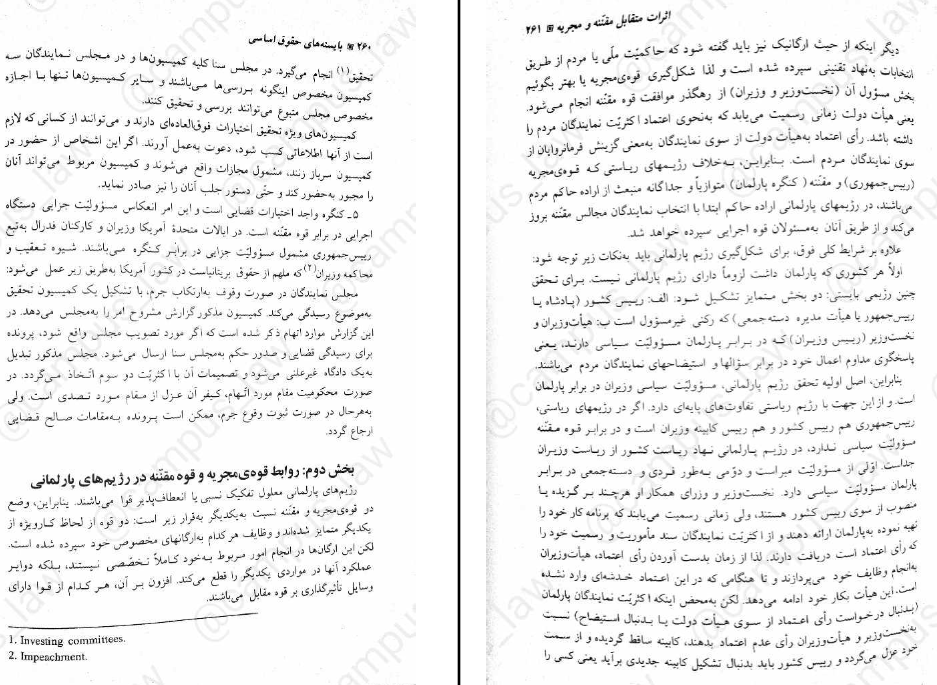 ۲۶۰ بایسته‌های حقوق اساسی
تحقیق(۱) انجام می‌گیرد. در مجلس سنا کلیه کمیسیون‌ها و در مجلس نمایندگان سه
کمیسیون مخصوص اینگونه بررسی‌ها می‌باشند و سایر کمیسیون‌ها تنها با اجازه
مخصوص مجلس متبوع می‌توانند بررسی و تحقیق کنند.
کمیسیون‌های ویژه تحقیق اختیارات فوق‌العاده‌ای دارند و می‌توانند از کسانی که لازم
است از آنها اطلاعاتی کسب شود، دعوت به‌عمل آورند. اگر این اشخاص از حضور در
کمیسیون سرباز زنند، مشمول مجازات واقع می‌شوند و کمیسیون مربوط می‌تواند آنان
را مجبور به‌حضور کند و حتّی دستور جلب آنان را نیز صادر نماید.
۵ـ کنگره واجد اختیارات قضایی است و این امر انعکاس مسؤولیّت جزایی دستگاه
اجرایی در برابر قوه مقنّنه است. در ایالات متحدهٔ آمریکا وزیران و کارکنان فدرال به‌تبع
رییس‌جمهوری مشمول مسؤولیّت جزایی در برابر کنگره می‌باشند. شیوه تعقیب و
محاکمه وزیران(۲)که ملهم از حقوق بریتانیاست در کشور آمریکا به‌طریق زیر عمل می‌شود:
مجلس نمایندگان در صورت وقوف به‌ارتکاب جرم، با تشکیل یک کمیسیون تحقیق
به‌موضوع رسیدگی می‌کند. کمیسیون مذکور گزارش مشروح امر را به‌مجلس می‌دهد. در
این گزارش موارد اتهام ذکر شده است که اگر مورد تصویب مجلس واقع شود، پرونده
برای رسیدگی قضایی و صدور حکم به‌مجلس سنا ارسال می‌شود. مجلس مذکور تبدیل
به‌یک دادگاه غیرعلنی می‌شود و تصمیمات آن با اکثریّت دو سوم اتّخاذ می‌گردد. در
صورت محکومیت مقام مورد اتّهام، کیفر آن عزل از مقام مورد تصدی است. ولی
به‌هرحال در صورت ثبوت وقوع جرم، ممکن است پرونده به‌مقامات صالح قضایی
ارجاع گردد.
بخش دوم: روابط قوه‌ی‌مجریه و قوه مقنّنه در رژیم‌های پارلمانی
رژیم‌های پارلمانی معلول تفکیک نسبی یا انعطاف‌پذیر قوا می‌باشند. بنابراین، وضع
دو قوه‌ی‌مجریه و مقنّنه نسبت به‌یکدیگر به‌قرار زیر است: دو قوه از لحاظ کارویژه از
یکدیگر متمایز شده‌اند و وظایف هر کدام به‌ارگانهای مخصوص خود سپرده شده است.
لکن این ارگان‌ها در انجام امور مربوط به‌خود کاملاً تخصّصی نیستند، بلکه دوایر
عملکرد آنها در مواردی یکدیگر را قطع می‌کند. افزون بر آن، هر کدام از قوا دارای
وسایل تأثیرگذاری بر قوه مقابل می‌باشند.
1. Investing committees.
2. Impeachment.
اثرات متقابل مقنّنه و مجریه ۲۶۱
دیگر اینکه از حیث ارگانیک نیز باید گفته شود که حاکمیّت ملّی یا مردم از طریق
انتخابات به‌نهاد تقنینی سپرده شده است و لذا شکل‌گیری قوه‌ی‌مجریه یا بهتر بگوئیم
بخش مسؤول آن (نخست‌وزیر و وزیران) از رهگذر موافقت قوه مقنّنه انجام می‌شود.
یعنی هیأت دولت زمانی رسمیت می‌یابد که به‌نحوی اعتماد اکثریّت نمایندگان مردم را
داشته باشد. رأی اعتماد به‌هیأت دولت از سوی نمایندگان به‌معنی گزینش فرمانروایان از
سوی نمایندگان مردم است. بنابراین، به‌خلاف رژیمهای ریاستی که قوه‌ی‌مجریه
(رییس‌جمهوری) و مقنّنه (کنگره پارلمان) متوازیاً و جداگانه منبعث از اراده حاکم مردم
می‌باشند، در رژیمهای پارلمانی اراده حاکم ابتدا با انتخاب نمایندگان مجالس مقنّنه بروز
می‌کند و از طریق آنان به‌مسئولان قوه اجرایی سپرده خواهد شد.
علاوه بر شرایط کلی فوق، برای شکل‌گیری رژیم پارلمانی باید به‌نکات زیر توجه شود:
اولاً هر کشوری که پارلمان داشت لزوماً دارای رژیم پارلمانی نیست. برای تحقق
چنین رژیمی بایستی: دو بخش متمایز تشکیل شود: الف: رییس کشور (پادشاه یا
رییس‌جمهور یا هیأت مدیره دسته‌جمعی) که رکنی غیرمسؤول است ب: هیأت‌وزیران و
نخست‌وزیر (رییس وزیران) که در برابر پارلمان مسؤولیّت سیاسی دارند، یعنی
پاسخگوی مداوم اعمال خود در برابر سؤالها و استیضاحهای نمایندگان مردم می‌باشند.
بنابراین، اصل اولیه تحقق رژیم پارلمانی، مسؤولیّت سیاسی وزیران در برابر پارلمان
است و از این جهت با رژیم ریاستی تفاوت‌های پایه‌ای دارد. اگر در رژیمهای ریاستی،
رییس‌جمهوری هم رییس کشور و هم رییس کابینه وزیران است و در برابر قوه مقنّنه
مسؤولیّت سیاسی ندارد، در رژیم پارلمانی نهاد ریاست کشور از ریاست وزیران
جداست. اوّلی از مسؤولیّت مبراست و دوّمی به‌طور فردی و دسته‌جمعی در برابر
پارلمان مسؤولیّت سیاسی دارد. نخست‌وزیر و وزرای همکار او هرچند بر گزیده یا
منصوب از سوی رییس کشور هستند، ولی زمانی رسمیت می‌یابند که برنامه کار خود را
تهیه نموده به‌پارلمان ارائه دهند و از اکثریّت نمایندگان سند مأموریت و رسمیت خود را
که رأی اعتماد است دریافت دارند. لذا از زمان بدست آوردن رأی اعتماد، هیأت‌وزیران
به‌انجام وظایف خود می‌پردازند و تا هنگامی که در این اعتماد خدشه‌ای وارد نشده
است. این هیأت بکار خود ادامه می‌دهد. لکن به‌محض اینکه اکثریّت نمایندگان پارلمان
(بدنبال درخواست رأی اعتماد از سوی هیأت دولت یا بدنبال استیضاح) نسبت
به‌نخست‌وزیر و هیأت‌وزیران رأی عدم اعتماد بدهند، کابینه ساقط گردیده و از سمت
خود عزل می‌گردد و رییس کشور باید بدنبال تشکیل کابینه جدیدی برآید یعنی کسی را